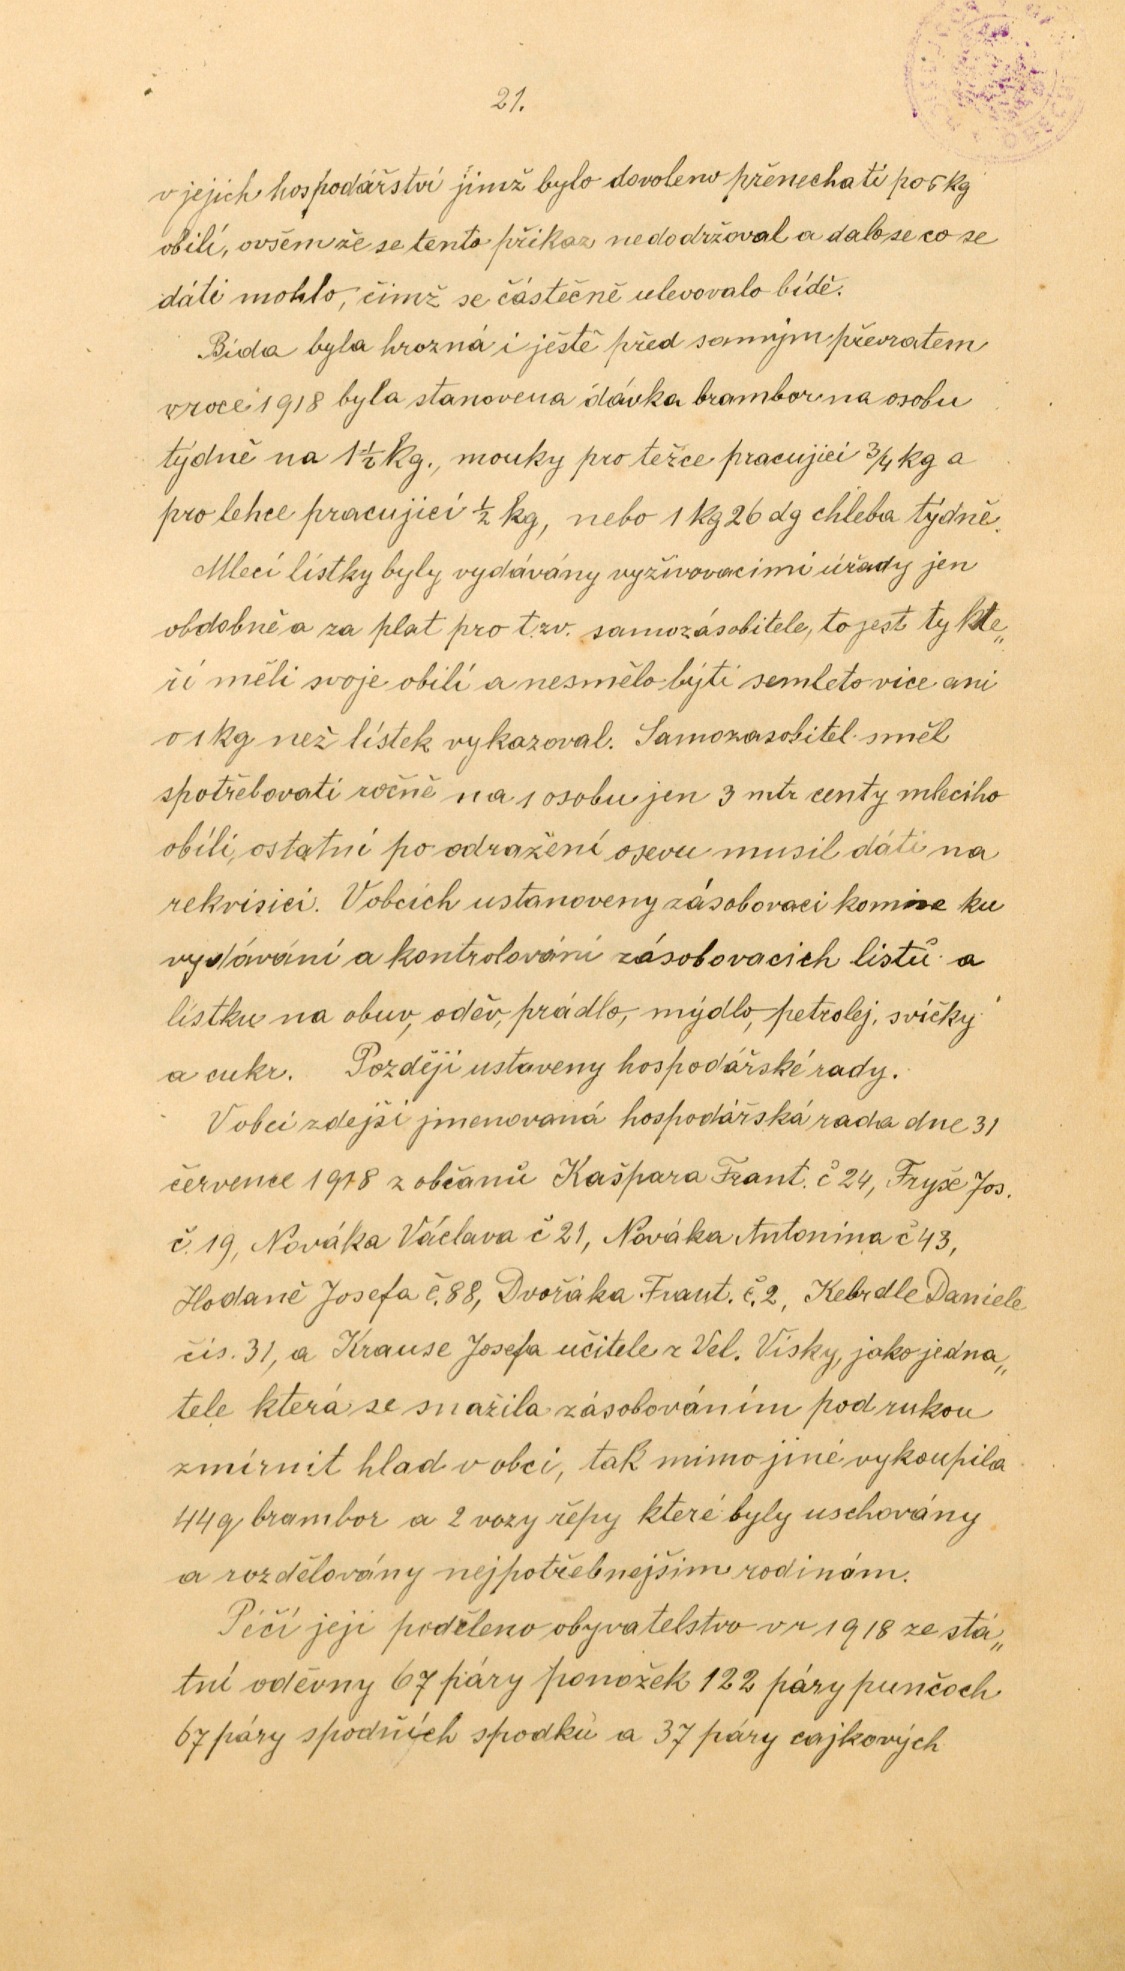 21.
v jejich hospodářství jimž bylo dovoleno přenechati po 5 kg
obilí, ovšem že se tento přikaz nedodržoval a dalo se co se
dáti mohlo, čimž se částečně ulevovalo bídě.
Bída byla hrozná i ještě před samým převratem
v roce 1918 byla stanovena dávka brambor na osobu
týdně na 1 1/2 kg., mouky pro težce pracujíci 3/4 kg a
pro lehce pracující 1/2 kg, nebo 1 kg 26 dg chleba týdně.
Mlecí lístky byly vydávány vyživovacimi úřady jen
obdobně a za plat pro t.zv. samozásobitele, to jest ty kte„
ří měli svoje obilí a nesmělo býti semleto vice ani
o 1 kg než lístek vykazoval. Samozasobitel směl
spotřebovati ročně na 1 osobu jen 3 mtr centy mleciho
obílí, ostatní po odražení osevu musil dáti na
rekvisici. V obcích ustanoveny zásobovaci komise ku
vydávání a kontrolování zásobovacich listů a
lístku na obuv, oděv, prádlo, mýdlo, petrolej, svíčky
a cukr. Později ustaveny hospodářské rady.
V obci zdejší jmenovaná hospodářská rada dne 31
července 1918 z občanů Kašpara Frant. č 24, Fryše Jos.
č. 19, Nováka Václava č 21, Nováka Antonína č 43,
Hodaně Josefa č. 88, Dvořáka Frant. č. 2, Kebrdle Daniele
čis. 31, a Krause Josefa učitele z Vel. Vísky, jako jedna„
tele která se snažila zásobováním pod rukou
zmírnit hlad v obci, tak mimo jiné vykoupila
44 q brambor a 2 vozy řepy které byly uschovány
a rozdělovány nejpotřebnejšim rodinám.
Péčí její poděleno obyvatelstvo v r 1918 ze stá„
tní oděvny 67 páry ponožek 122 páry punčoch
67 páry spodních spodků a 37 páry cajkových